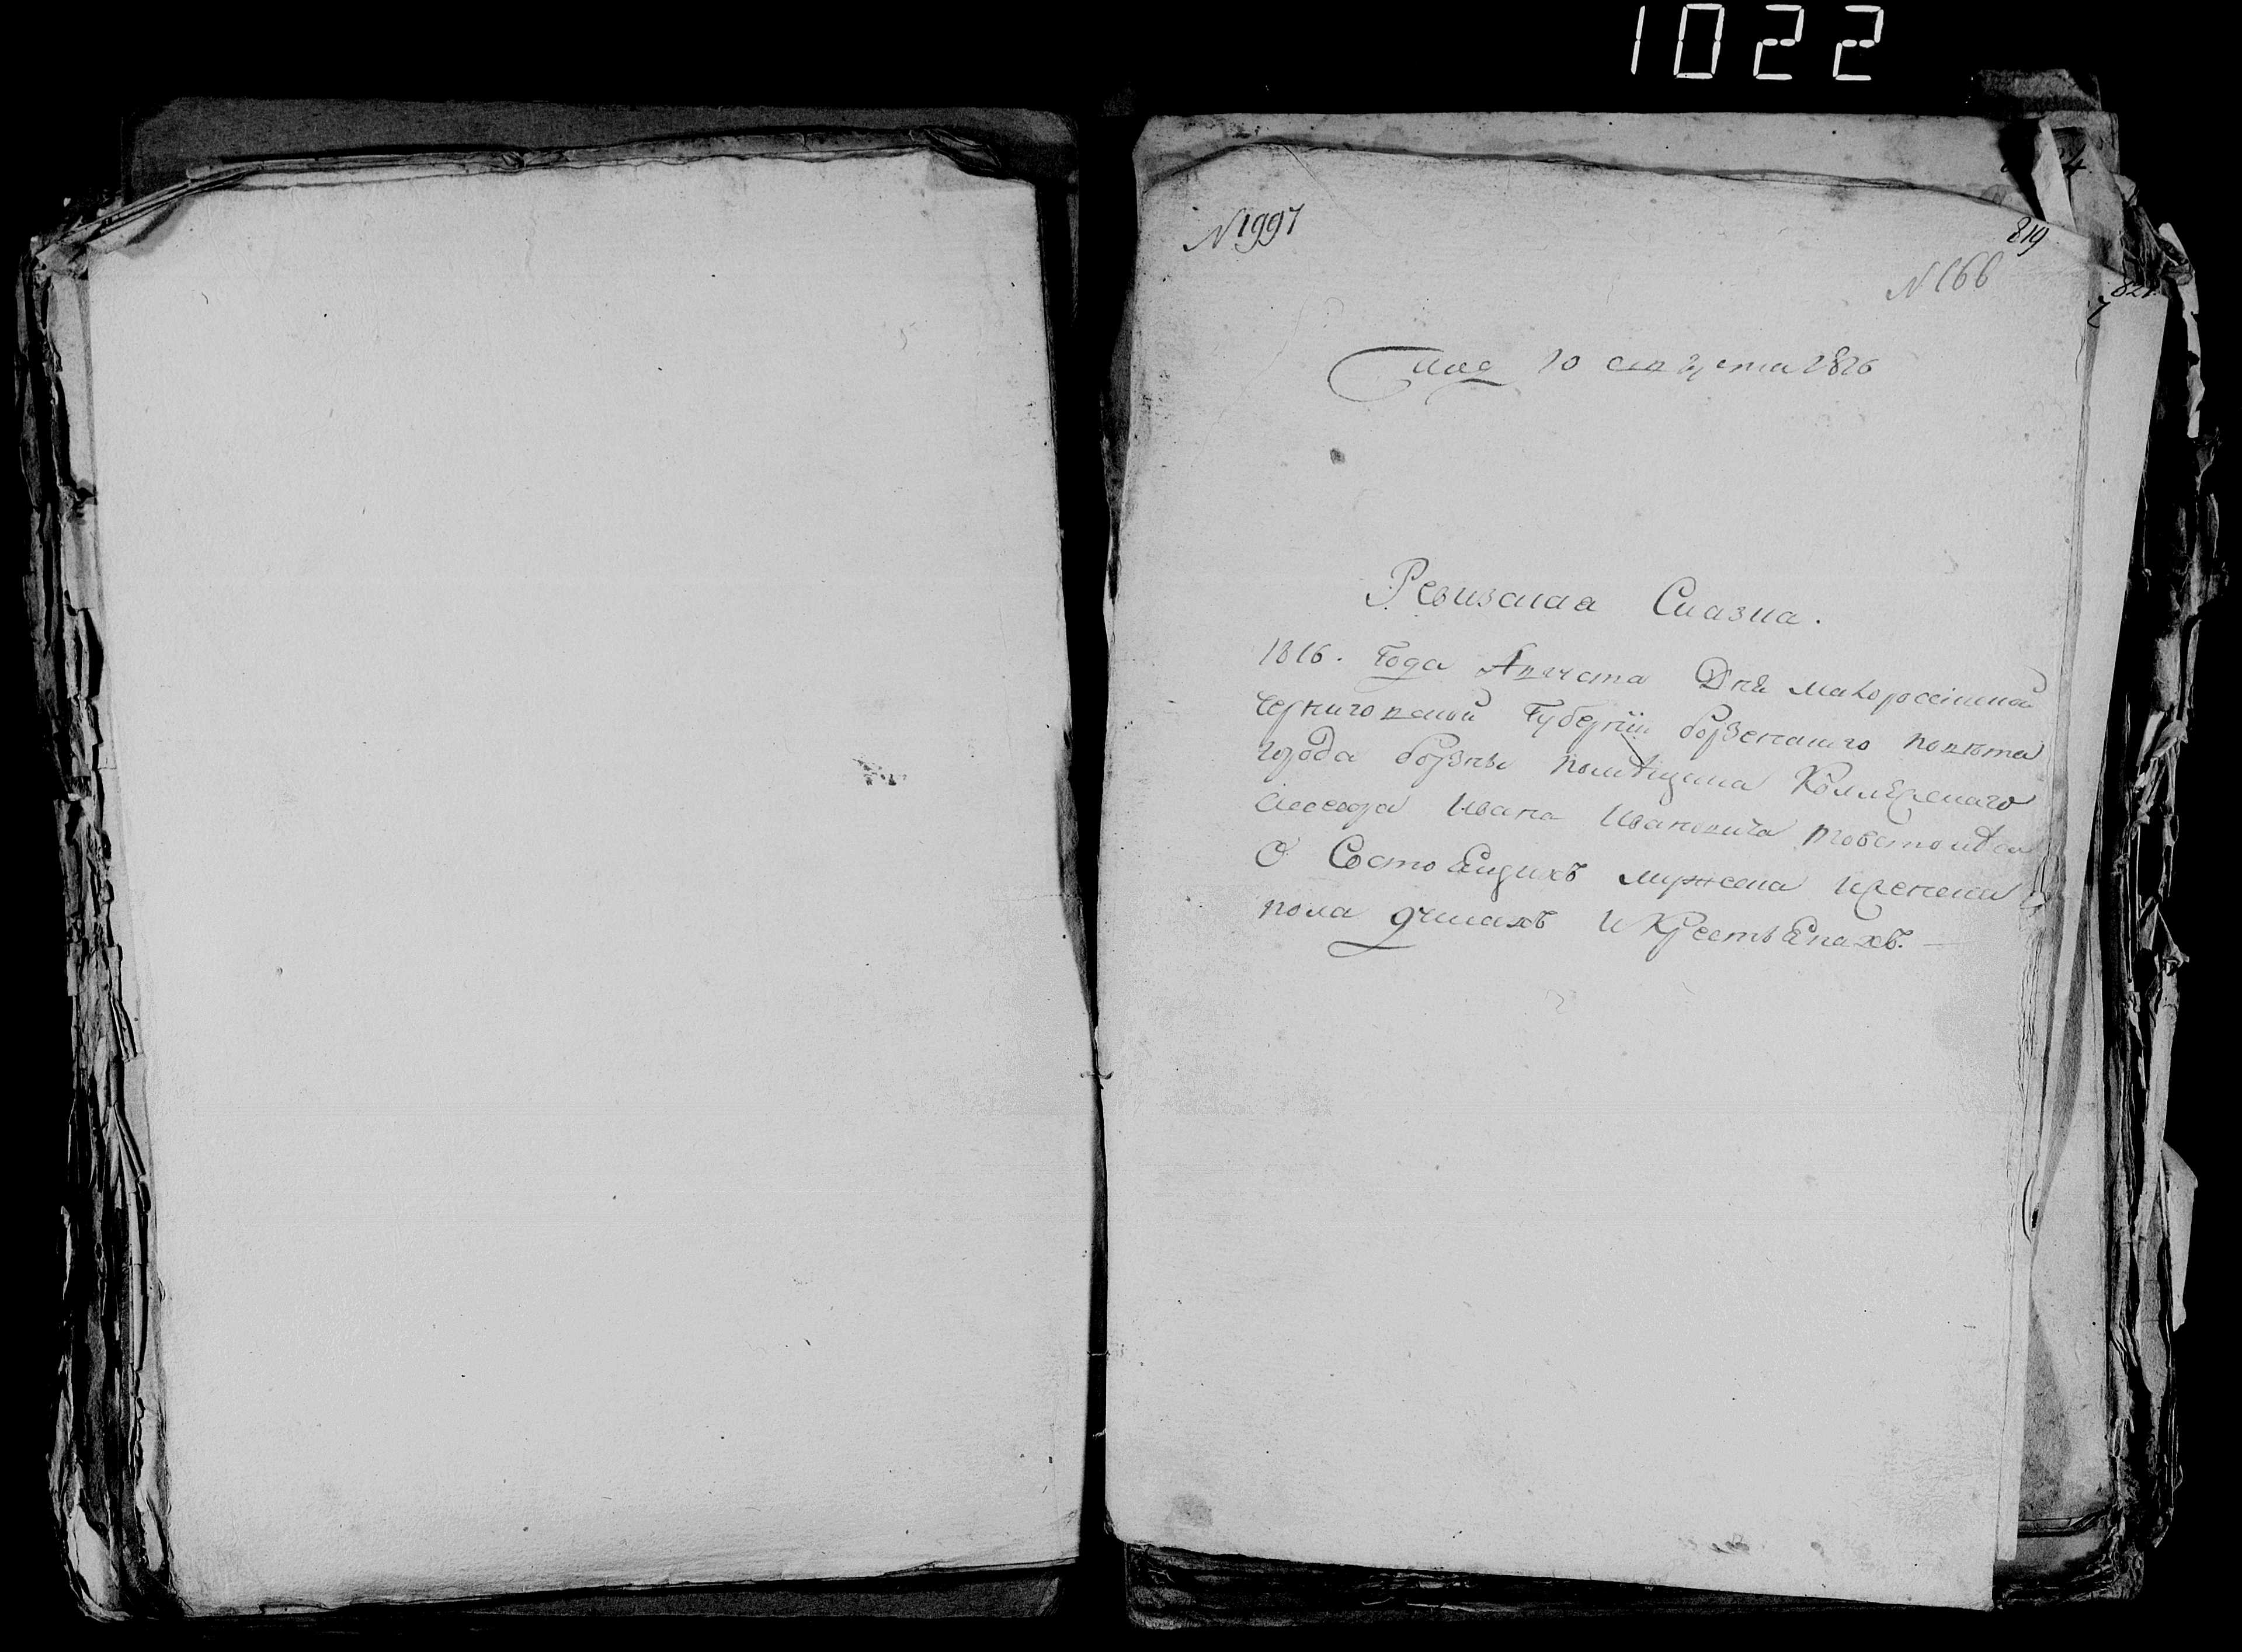 1022
N 1997
819
N 166
821
10 августа 1816
Ревизская Сказка.
1816. Года Августа Дня малороссийской
Черниговской Губернїи борзенского повѣта
города борзны помѣщика Коллежского
Асесора Ивана Ивановича
О Состоящихъ мужеска иженска
пола душахъ И Крестьянахъ.